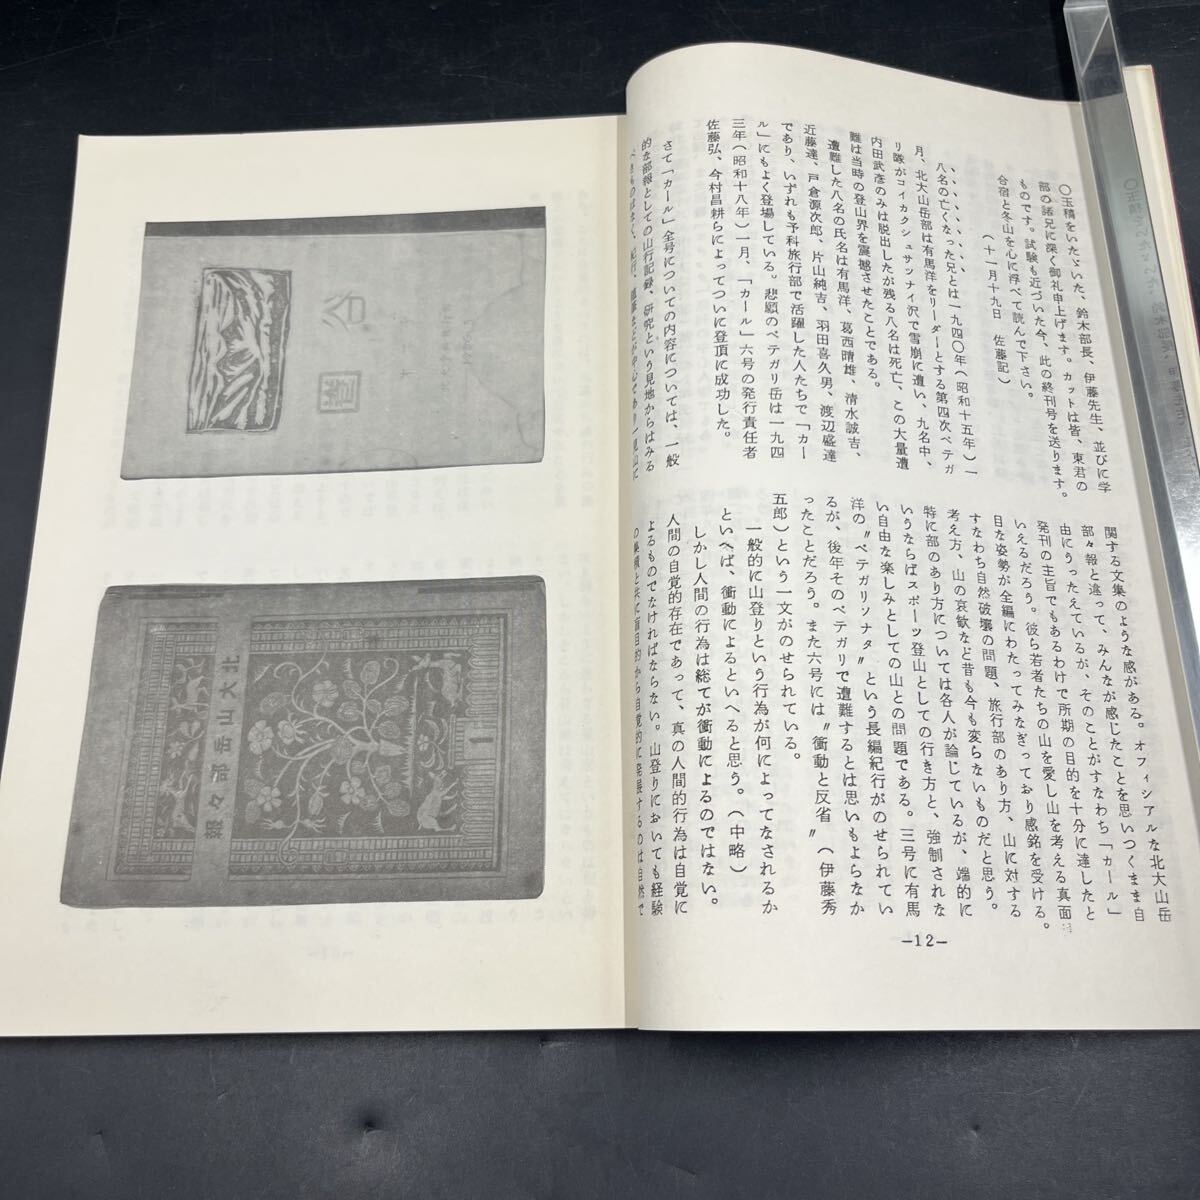 〇玉稿をいたゞいた、鈴木部長、伊藤先生、並びに学
部の諸兄に深く御礼申上げます。カットは皆、東君の
ものです。試験も近づいた今、此の終刊号を送ります。
合宿と冬山を心に浮べて読んで下さい。
（十一月十九日　佐藤記）
、、、、、、、、
八名の亡くなった兄とは一九四〇年（昭和十五年）一
月、北大山岳部は有馬洋をリーダーとする第四次ペテガ
リ隊がコイカクシュサツナイ沢で雪崩に遭い、九名中、
内田武彦のみは脱出したが残る八名は死亡、この大量遭
難は当時の登山界を震撼させたことである。
遭難した八名の氏名は有馬洋、葛西晴雄、清水誠吉、
近藤達、戸倉源次郎、片山純吉、羽田喜久男、渡辺盛達
であり、いずれも予科旅行部で活躍した人たちで「カー
ル」にもよく登場している。悲願のペテガリ岳は一九四
三年（昭和十八年）一月、「カール」六号の発行責任者
佐藤弘、今村昌耕らによってついに登頂に成功した。
さて「カール」全号についての内容については、一般
的な部報としての山行記録、研究という見地からはみる
関する文集のような感がある。オフィシアルな北大山岳
部々報と違って、みんなが感じたことを思いつくまま自
由にうったえているが、そのことがすなわち「カール」
発刊の主旨でもあるわけで所期の目的を十分に達したと
いえるだろう。彼ら若者たちの山を愛し山を考える真面
目な姿勢が全編にわたってみなぎっており感銘を受ける。
すなわち自然破壊の問題、旅行部のあり方、山に対する
考え方、山の哀歓など昔も今も変らないものだと思う。
特に部のあり方については各人が論じているが、端的に
いうならばスポーツ登山としての行き方と、強制されな
い自由な楽しみとしての山との問題である。三号に有馬
洋の〝ペテガリソナタ〟という長編紀行がのせられてい
るが、後年そのペテガリで遭難するとは思いもよらなか
ったことだろう。また六号には〝衝動と反省〟（伊藤秀
五郎）という一文がのせられている。
一般的に山登りという行為が何によってなされるか
といへば、衝動によるといへると思う。（中略）
しかし人間の行為は総てが衝動によるのではない。
人間の自覚的存在であって、真の人間的行為は自覚に
よるものでなければならない。山登りにおいても経験
の集積と共に盲目的から自覚的に発展するのは自然で
―12―
谷
北大山岳部々報
1